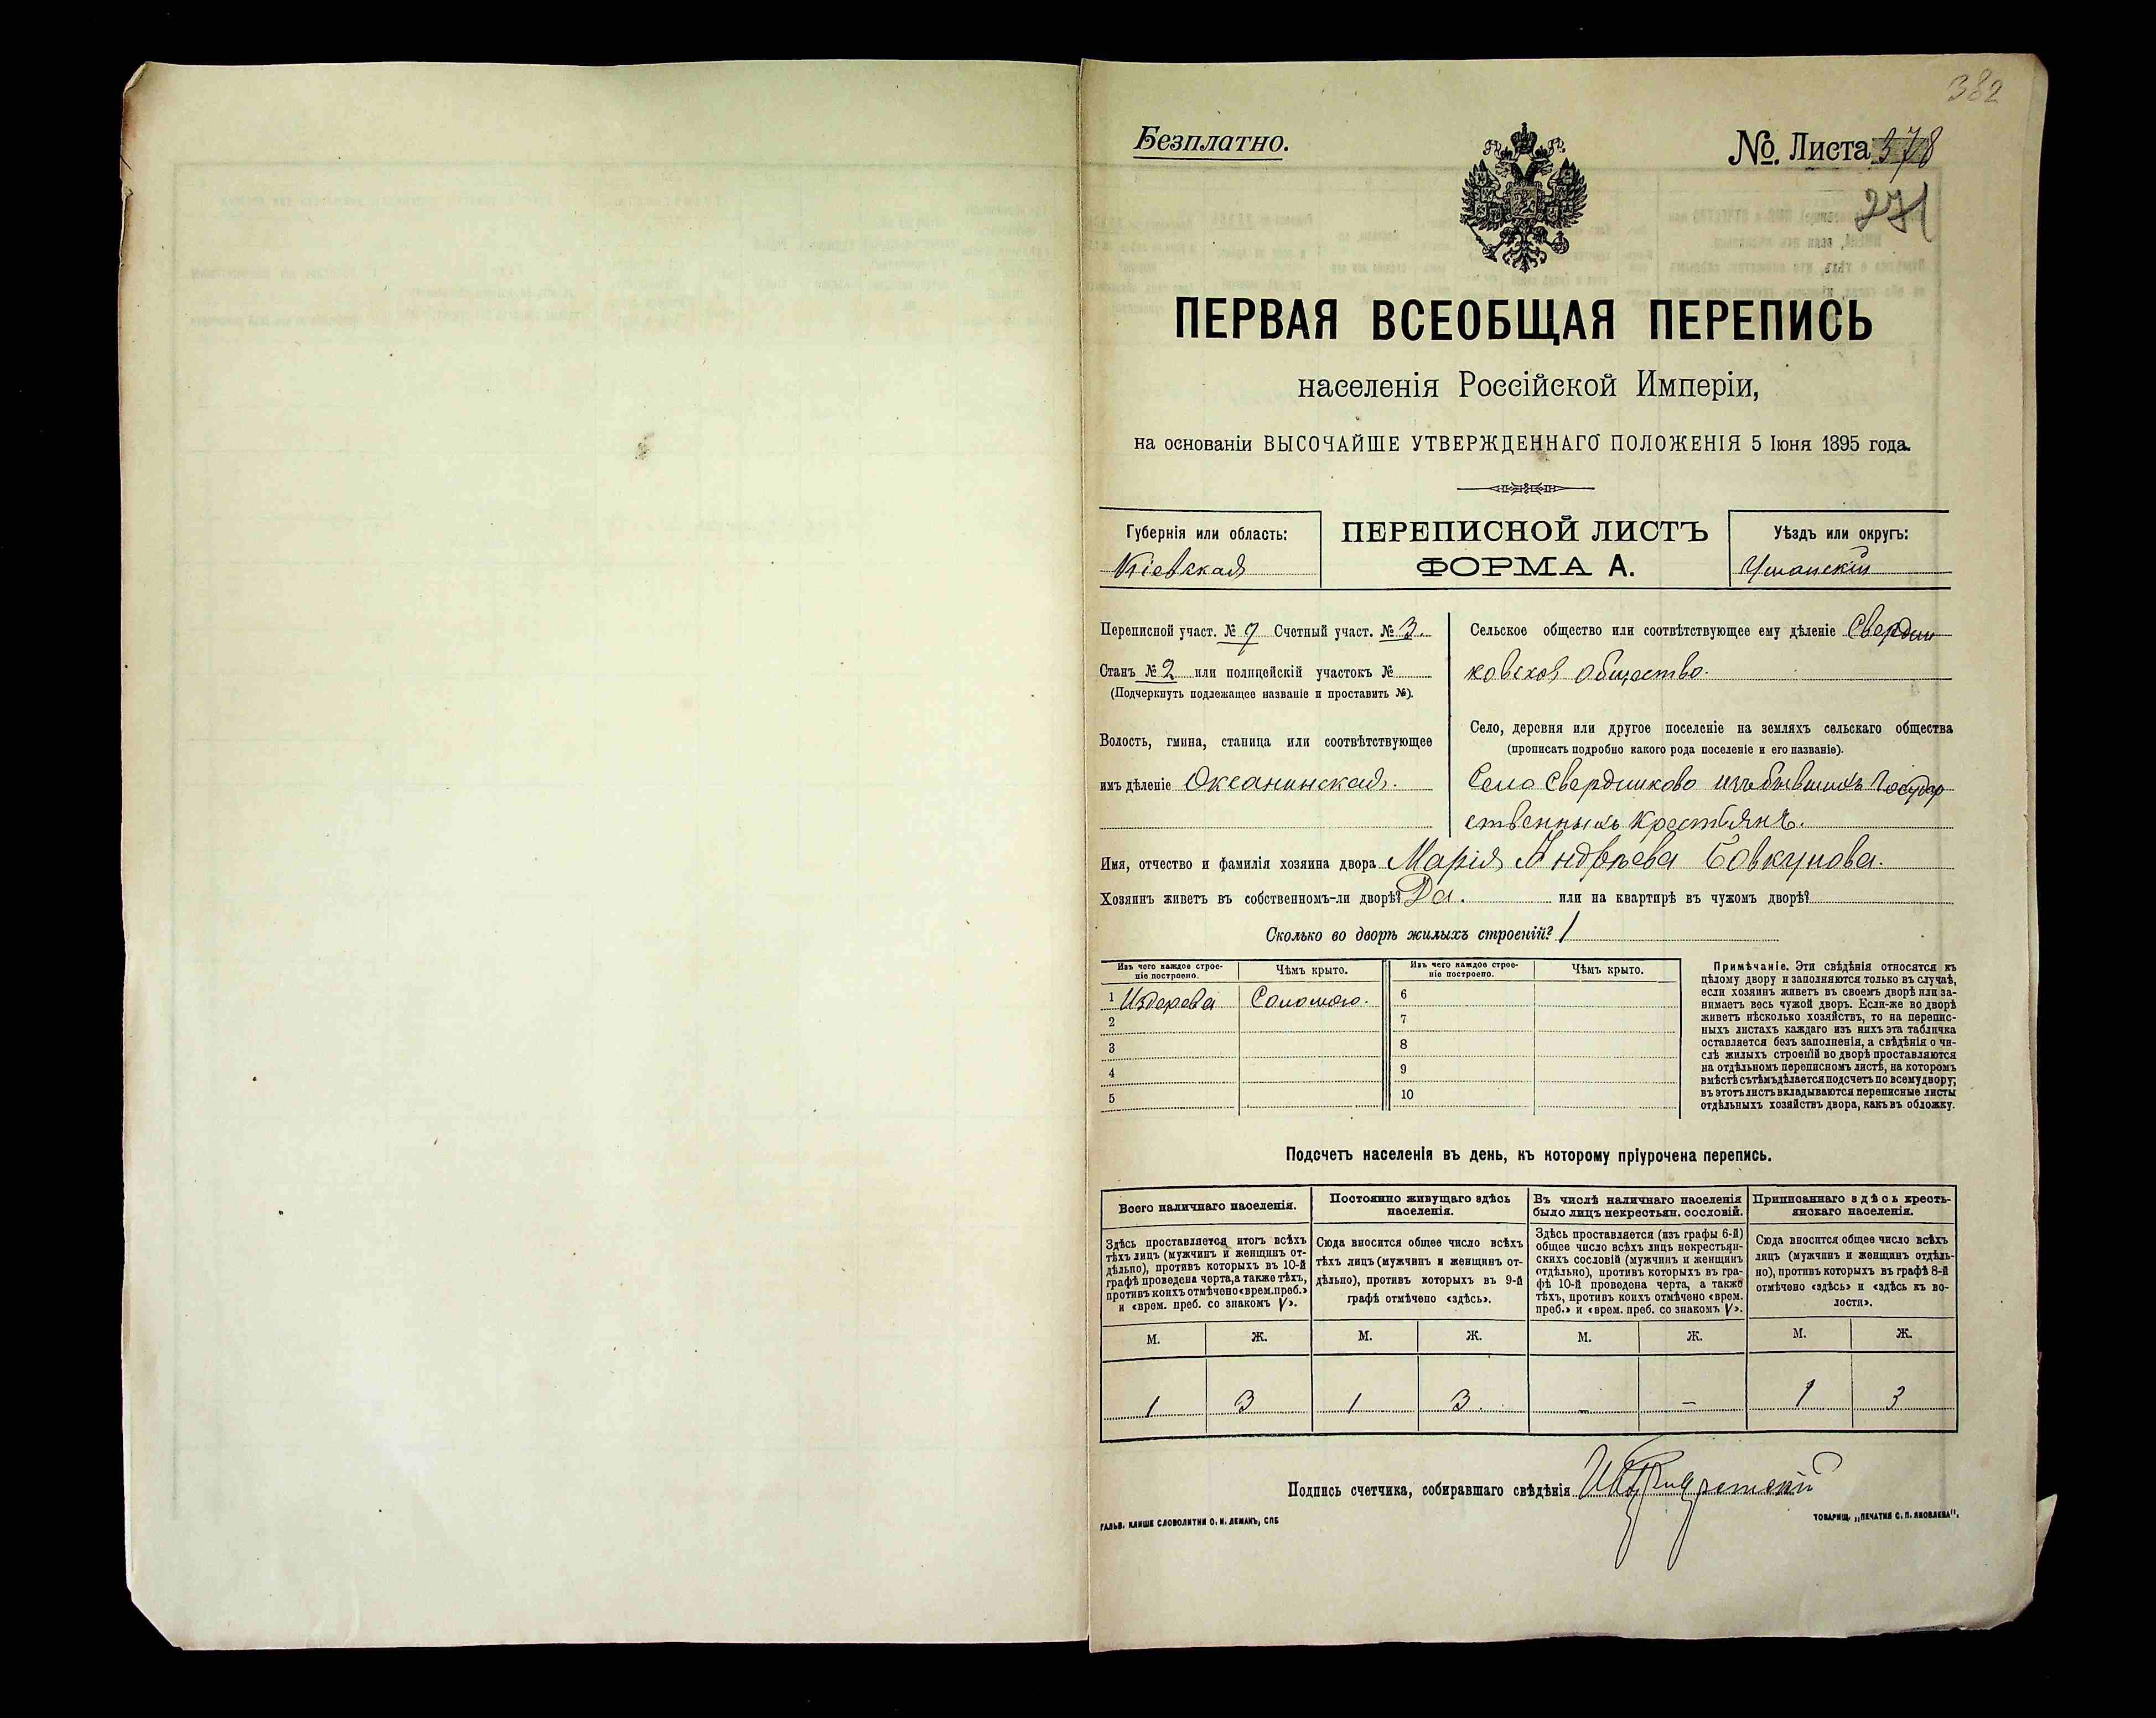 382
Безплатно.
№. Листа 378
271
ПЕРВАЯ ВСЕОБЩАЯ ПЕРЕПИСЬ
населенія Россійской Имперіи,
на основаніи ВЫСОЧАЙШЕ УТВЕРЖДЕННАГО ПОЛОЖЕНІЯ 5 Іюня 1895 года.
Губернія или область:
Кіевская
ПЕРЕПИСНОЙ ЛИСТЪ
ФОРМА А.
Уѣздъ или округъ:
Уманскій
Переписной участ. № 7 Счетный участ. № 3.
Станъ № 2 или полицейскій участокъ №
(Подчеркнуть подлежащее названіе и проставить №).
Волость, гмина, станица или соотвѣтствующее
имъ дѣленіе Оксанинская.
Сельское общество или соотвѣтствующее ему дѣленіе Сверdли
ковское общество.
Село, деревня или другое поселеніе на земляхъ сельскаго общества
(прописать подробно какого рода поселеніе и его названіе).
Село Свердликово изъ бывшихъ Государ
ственныхъ крестьянъ.
Имя, отчество и фамилія хозяина двора Марія Андрѣева Бовкунова.
Хозяинъ живетъ въ собственномъ-ли дворѣ? Да. или на квартирѣ въ чужомъ дворѣ?
Сколько во дворѣ жилыхъ строеній? 1
Изъ чего каждое строе-
ніе построено.
Чѣмъ крыто.
Изъ чего каждое строе-
ніе построено.
Чѣмъ крыто.
1 Из дерева Соломою. 6
2 7
3 8
4 9
5 10
Примѣчаніе. Эти свѣдѣнія относятся къ
цѣлому двору и заполняются только въ случаѣ,
если хозяинъ живетъ въ своемъ дворѣ или за-
нимаетъ весь чужой дворъ. Если-же во дворѣ
живетъ нѣсколько хозяйствъ, то на перепис-
ныхъ листахъ каждаго изъ нихъ эта табличка
оставляется безъ заполненія, а свѣдѣнія о чи-
слѣ жилыхъ строеній во дворѣ проставляются
на отдѣльномъ переписномъ листѣ, на которомъ
вмѣстѣ съ тѣмъ дѣлается подсчетъ по всему двору;
въ этотъ листъ вкладываются переписные листы
отдѣльныхъ хозяйствъ двора, какъ въ обложку.
Подсчетъ населенія въ день, къ которому пріурочена перепись.
Всего наличнаго населенія.
Здѣсь проставляется итогъ всѣхъ
тѣхъ лицъ (мужчинъ и женщинъ от-
дѣльно), противъ которыхъ въ 10-й
графѣ проведена черта, а также тѣхъ,
противъ коихъ отмѣчено «врем. преб.»
и «врем. преб. со знакомъ V».
Постоянно живущаго здѣсь
населенія.
Сюда вносится общее число всѣхъ
тѣхъ лицъ (мужчинъ и женщинъ от-
дѣльно), противъ которыхъ въ 9-й
графѣ отмѣчено «здѣсь».
Въ числѣ наличнаго населенія
было лицъ некрестьян. сословій.
Здѣсь проставляется (изъ графы 6-й)
общее число всѣхъ лицъ некрестьян-
скихъ сословій (мужчинъ и женщинъ
отдѣльно), противъ которыхъ въ гра-
фѣ 10-й проведена черта, а также
тѣхъ, противъ коихъ отмѣчено «врем.
преб.» и «врем. преб. со знакомъ V».
Приписаннаго здѣсь кресть-
янскаго населенія.
Сюда вносится общее число всѣхъ
лицъ (мужчинъ и женщинъ отдѣль-
но), противъ которыхъ въ графѣ 8-й
отмѣчено «здѣсь» и «здѣсь къ во-
лости».
М. Ж. М. Ж. М. Ж. М. Ж.
1 3 1 3. – – 1 3
Подпись счетчика, собиравшаго свѣдѣнія
ГАЛЬВ. КЛИШЕ СЛОВОЛИТНИ О. И. ЛЕМАНЪ, СПБ
ТОВАРИЩ. „ПЕЧАТНЯ С. П. ЯКОВЛЕВА".